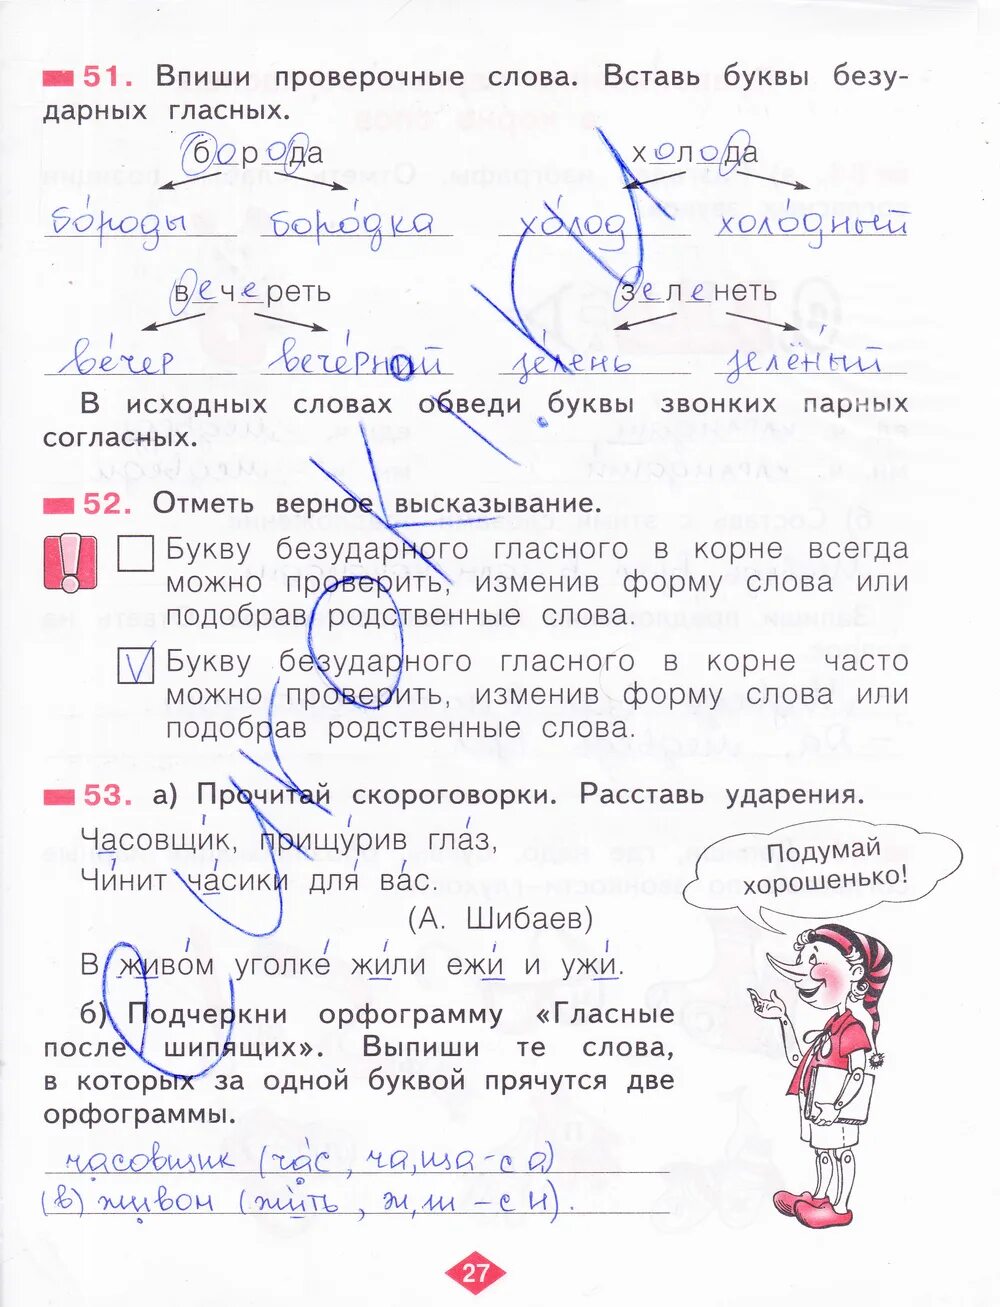 51. Впиши проверочные слова. Вставь буквы безу-
дарных гласных.
борода холода
бо́роды боро́дка хо́лод холо́дный
вечереть зеленеть
ве́чер вече́рний зе́лень зелёный
В исходных словах обведи буквы звонких парных
согласных.
52. Отметь верное высказывание.
Букву безударного гласного в корне всегда
можно проверить, изменив форму слова или
подобрав родственные слова.
V Букву безударного гласного в корне часто
можно проверить, изменив форму слова или
подобрав родственные слова.
53. а) Прочитай скороговорки. Расставь ударения.
Часовщи́к, прищу́рив гла́з,
Чи́нит ча́сики для́ ва́с.
(А. Шибаев)
В живо́м уголке́ жи́ли ежи́ и ужи́.
Подумай
хорошенько!
б) Подчеркни орфограмму «Гласные
после шипящих». Выпиши те слова,
в которых за одной буквой прячутся две
орфограммы.
часовщик (ча́с, ча,ща-с а)
(в) живом (жи́ть, ж,ши-с и).
27